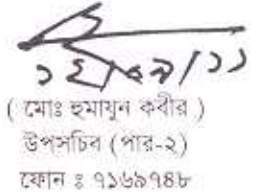 ( মোঃ হুমায়ুন কবীর )
উপসচিব (পার-২)
ফোন ঃ ৭১৬৯৭৪৮